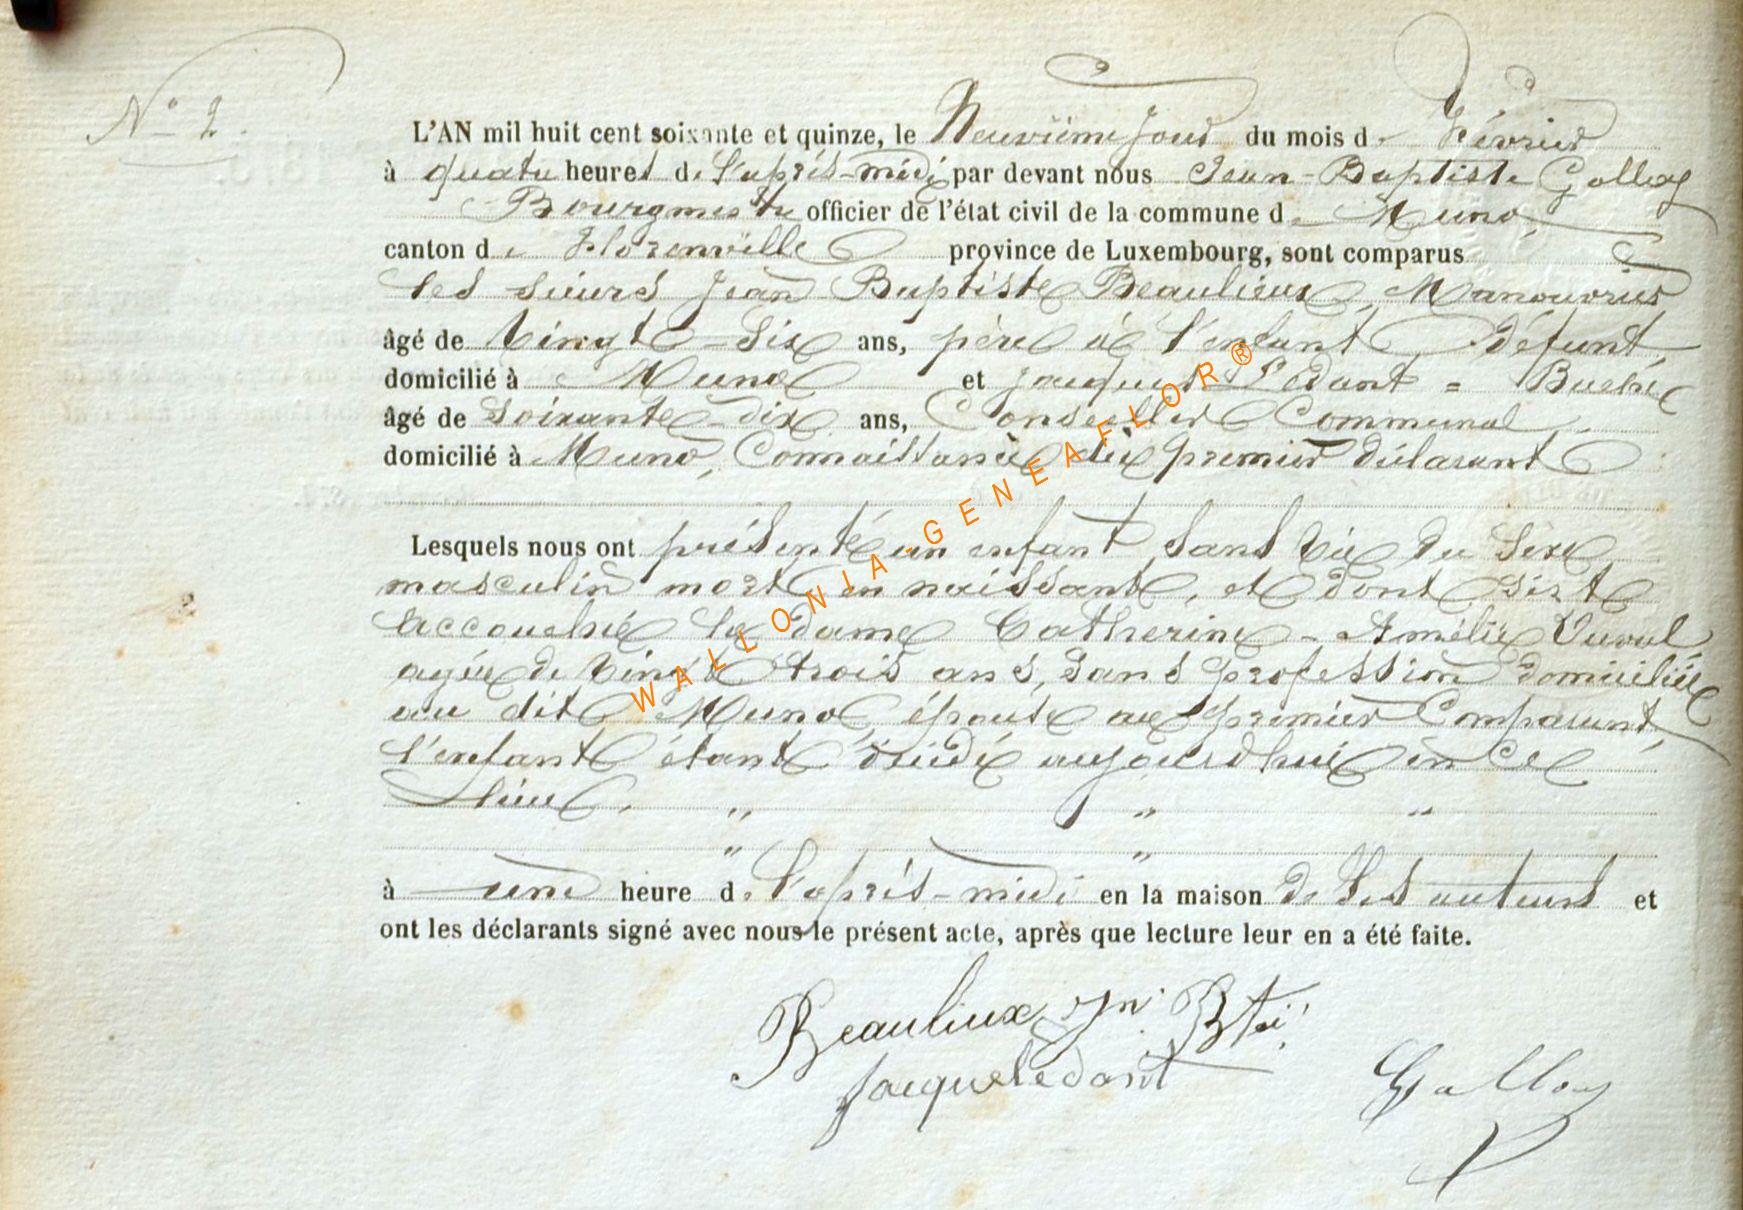 N° 2.
L'AN mil huit cent soixante et quinze, le Neuvième jour du mois de Février
à quatre heures de l'après-midi par devant nous Jean-Baptiste Golloy
Bourgmestre officier de l'état civil de la commune de Muno,
canton de Florenville province de Luxembourg, sont comparus
les sieurs Jean Baptiste Beaulieux, Manouvrier
âgé de Vingt-Six ans, père de l'enfant défunt,
domicilié à Muno et Jacques Lédant =
âgé de Soixante-dix ans, Conseiller Communal,
domicilié à Muno, Connaissance du premier déclarant
Lesquels nous ont présenté un enfant Sans Vie du Sexe
masculin mort en naissant, et dont s'est
accouchée la dame Catherine-Amélie
agée de Vingt trois ans, Sans profession domiciliée
au dit Muno, épouse au premier Comparant,
l'enfant étant décédé aujourd'hui en Ce
lieu. " " "
" "
à une heure de l'après-midi en la maison de Ses auteurs et
ont les déclarants signé avec nous le présent acte, après que lecture leur en a été faite.
Beauliux Jn Bte
Jacque Ledant
Golloy
WALLONIA-GENEAFLOR®